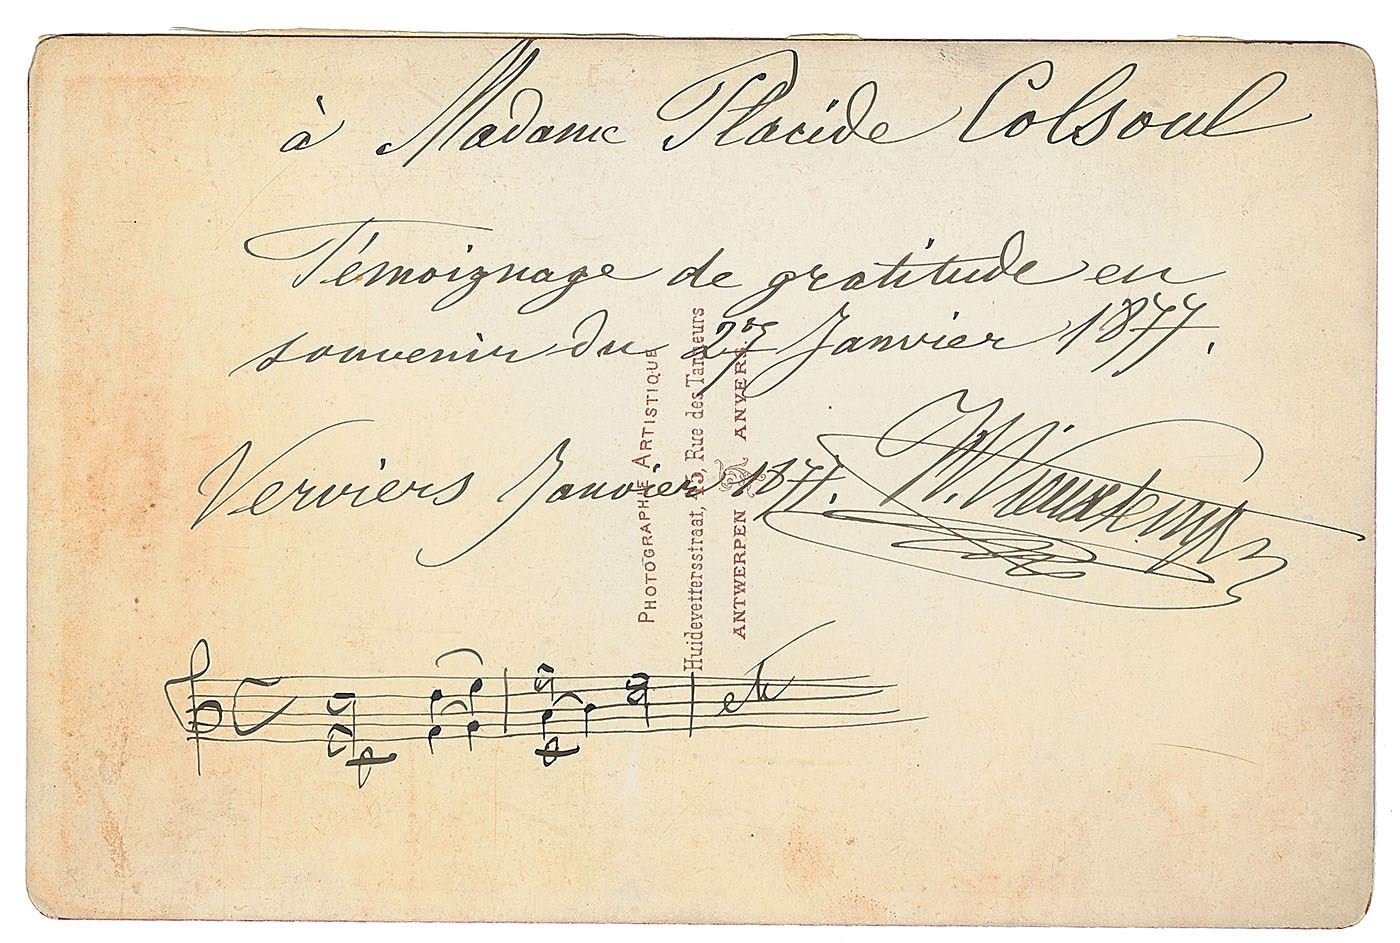 à Madame Placide Colsoul
Témoignage de gratitude en
souvenir du 27 Janvier 1877.
Verviers Janvier 1877. H. Vieuxtemps
etc
PHOTOGRAPHIE ARTISTIQUE
Huidevettersstraat, 45, Rue des Tanneurs
ANTWERPEN ANVERS.